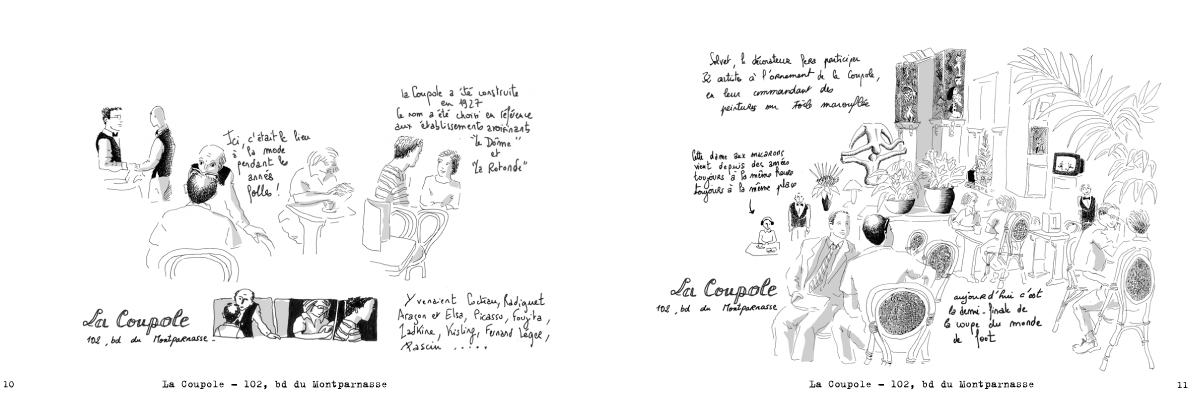 La Coupole a été construite
en 1927
le nom a été choisi en référence
aux établissements avoisinants
"le Dôme"
et
"la Rotonde"
Ici, c'était le lieu
à la mode
pendant les
annés
folles !
La Coupole
102, bd du Montparnasse
Y venaient Cocteau, Radiguet
Aragon et Elsa, Picasso, Foujita,
Zadkine, Kisling, Fernand Léger,
Pascin .....
10
La Coupole - 102, bd du Montparnasse
Solvet, le décorateur fera participer
32 artistes à l'ornement de la Coupole,
en leur commandant des
peintures sur toile marouflée
Cette dame aux macarons
vient depuis des années
toujours à la même heure
toujours à la même place
La Coupole
102, bd du Montparnasse
aujourd'hui c'est
la demi-finale de
la coupe du monde
de foot
La Coupole - 102, bd du Montparnasse
11